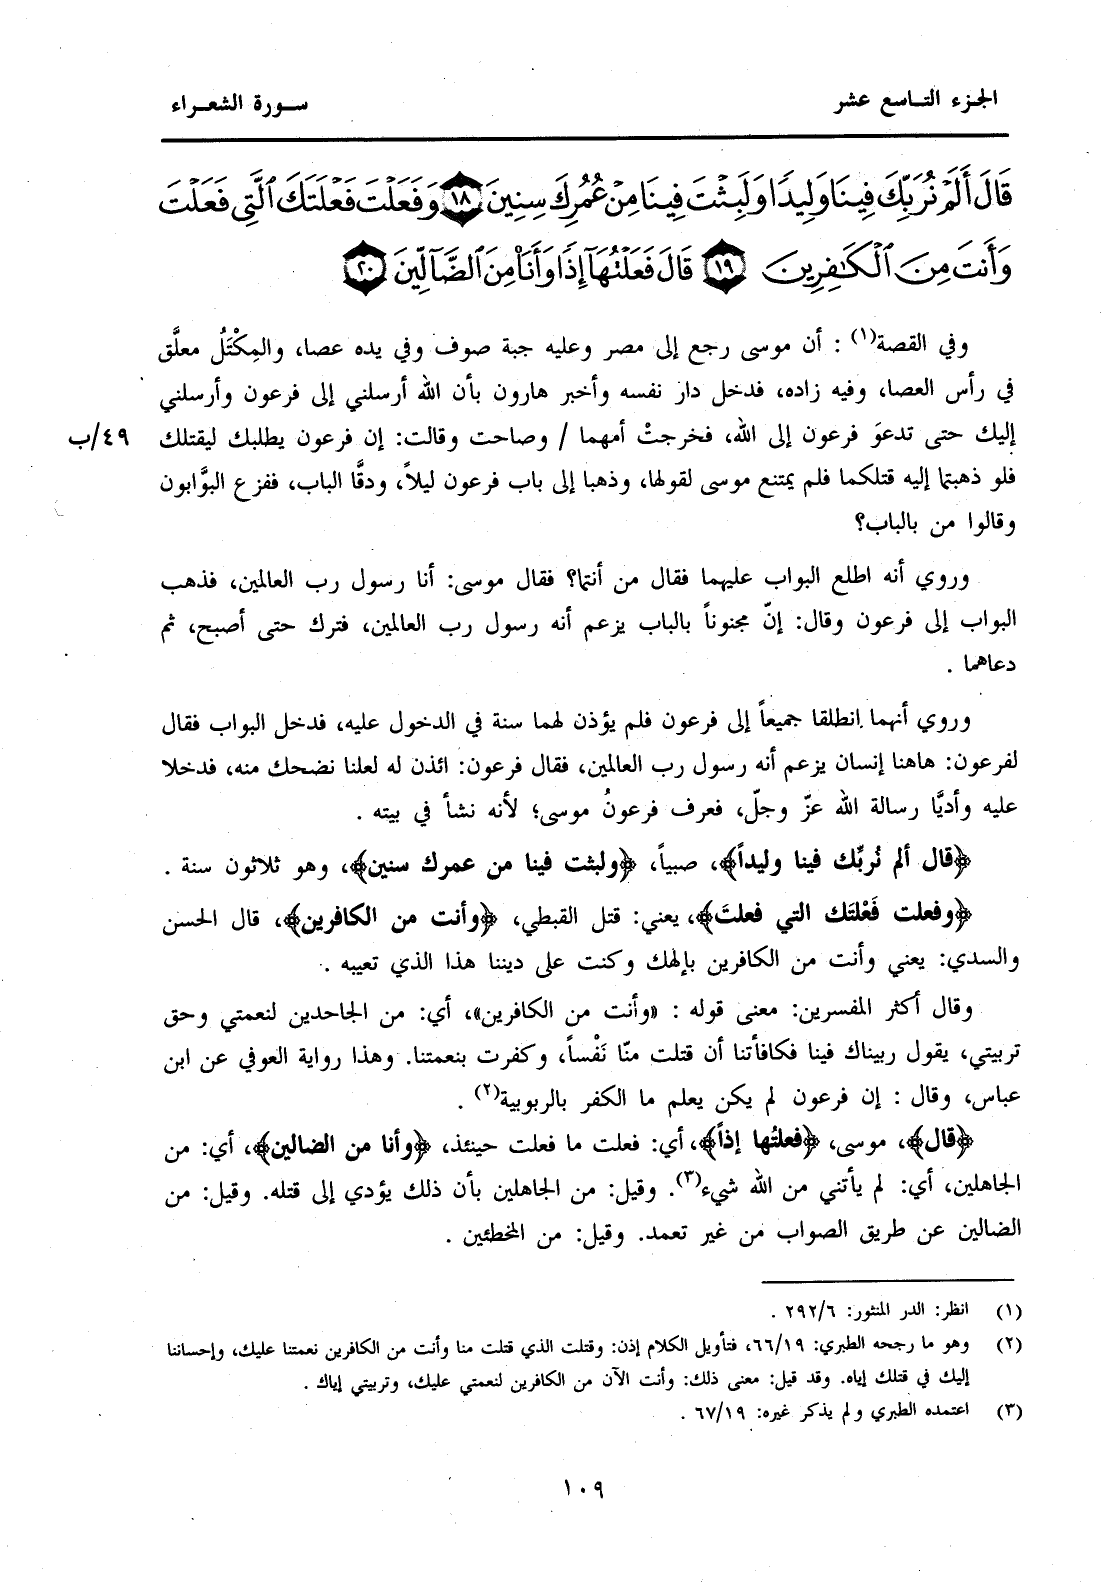 الجزء التاسع عشر
سورة الشعراء
قَالَ أَلَمْ نُرَبِّكَ فِينَا وَلِيدًا وَلَبِثْتَ فِينَا مِنْ عُمُرِكَ سِنِينَ ۝١٨ وَفَعَلْتَ فَعْلَتَكَ ٱلَّتِى فَعَلْتَ
وَأَنتَ مِنَ ٱلْكَٰفِرِينَ ۝١٩ قَالَ فَعَلْتُهَآ إِذًا وَأَنَا۠ مِنَ ٱلضَّآلِّينَ ۝٢٠
وفي القصة(١) : أن موسى رجع إلى مصر وعليه جبة صوف وفي يده عصا، والمِكْتَلُ معلَّق
في رأس العصا، وفيه زاده، فدخل دار نفسه وأخبر هارون بأن الله أرسلني إلى فرعون وأرسلني
إليك حتى تدعوَ فرعون إلى الله، فخرجتْ أمهما / وصاحت وقالت: إن فرعون يطلبك ليقتلك
٤٩/ب
فلو ذهبتما إليه قتلكما فلم يمتنع موسى لقولها، وذهبا إلى باب فرعون ليلاً، ودقَّا الباب، ففزع البوَّابون
وقالوا من بالباب؟
وروي أنه اطلع البواب عليهما فقال من أنتما؟ فقال موسى: أنا رسول رب العالمين، فذهب
البواب إلى فرعون وقال: إنّ مجنوناً بالباب يزعم أنه رسول رب العالمين، فترك حتى أصبح، ثم
دعاهما .
وروي أنهما انطلقا جميعاً إلى فرعون فلم يؤذن لهما سنة في الدخول عليه، فدخل البواب فقال
لفرعون: هاهنا إنسان يزعم أنه رسول رب العالمين، فقال فرعون: ائذن له لعلنا نضحك منه، فدخلا
عليه وأديَّا رسالة الله عزّ وجلّ، فعرف فرعونُ موسى؛ لأنه نشأ في بيته .
﴿قال ألم نُربِّك فينا وليداً﴾، صبياً، ﴿ولبثت فينا من عمرك سنين﴾، وهو ثلاثون سنة .
﴿وفعلت فَعْلتَك التي فعلتَ﴾، يعني: قتل القبطي، ﴿وأنت من الكافرين﴾، قال الحسن
والسدي: يعني وأنت من الكافرين بإلهك وكنت على ديننا هذا الذي تعيبه .
وقال أكثر المفسرين: معنى قوله : «وأنت من الكافرين»، أي: من الجاحدين لنعمتي وحق
تربيتي، يقول ربيناك فينا فكافأتنا أن قتلت منّا نَفْساً، وكفرت بنعمتنا. وهذا رواية العوفي عن ابن
عباس، وقال : إن فرعون لم يكن يعلم ما الكفر بالربوبية(٢) .
﴿قال﴾، موسى، ﴿فعلتُها إذاً﴾، أي: فعلت ما فعلت حينئذ، ﴿وأنا من الضالين﴾، أي: من
الجاهلين، أي: لم يأتني من الله شيء(٣). وقيل: من الجاهلين بأن ذلك يؤدي إلى قتله. وقيل: من
الضالين عن طريق الصواب من غير تعمد. وقيل: من المخطئين .
(١) انظر: الدر المنثور: ٢٩٢/٦ .
(٢) وهو ما رجحه الطبري: ٦٦/١٩، فتأويل الكلام إذن: وقتلت الذي قتلت منا وأنت من الكافرين نعمتنا عليك، وإحساننا
إليك في قتلك إياه. وقد قيل: معنى ذلك: وأنت الآن من الكافرين لنعمتي عليك، وتربيتي إياك .
(٣) اعتمده الطبري ولم يذكر غيره: ٦٧/١٩ .
١٠٩